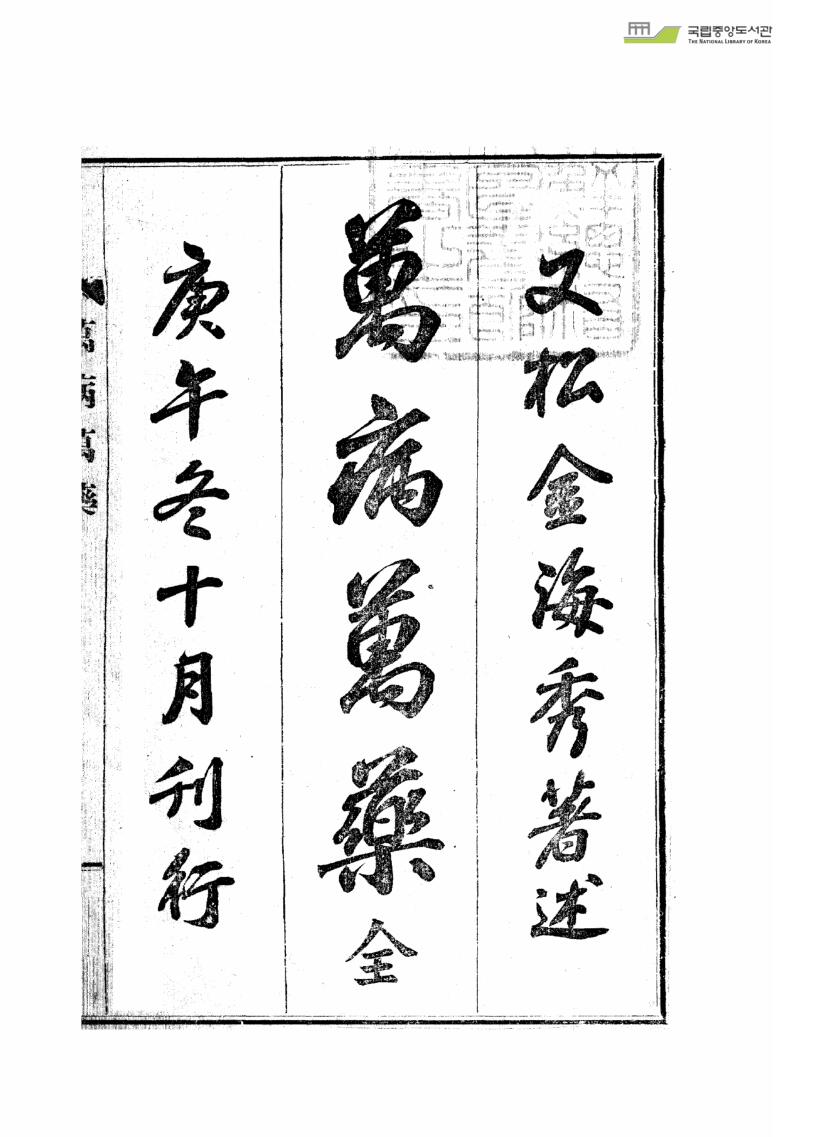 국립중앙도서관
THE NATIONAL LIBRARY OF KOREA
又松金海秀著述
萬病萬藥全
庚午冬十月刊行
萬病萬藥